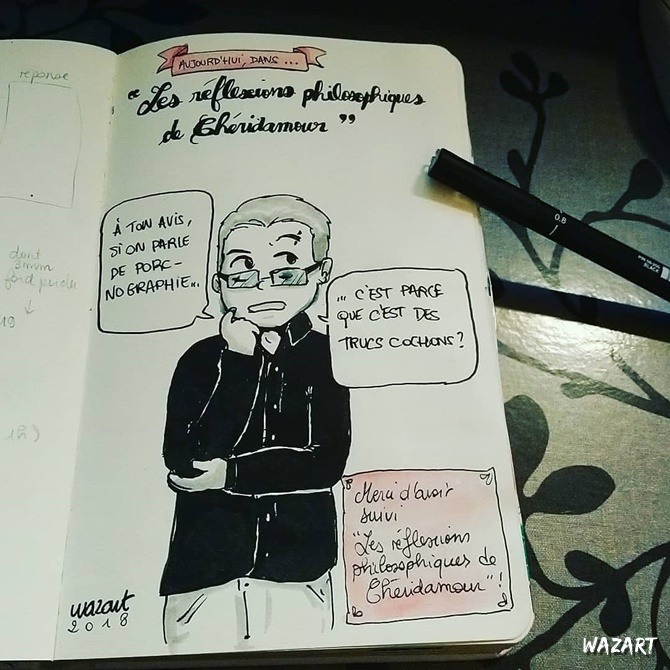 réponse
AUJOURD'HUI, DANS ...
"Les réflexions philosophiques
de Chéridamour"
À TON AVIS,
SI ON PARLE
DE PORC-
NOGRAPHIE...
... C'EST PARCE
QUE C'EST DES
TRUCS COCHONS ?
dont
3mm
fond perdu
19
Merci d'avoir
suivi
"Les réflexions
philosophiques de
Chéridamour" !
wazart
2018
0.8
BLACK
WAZART